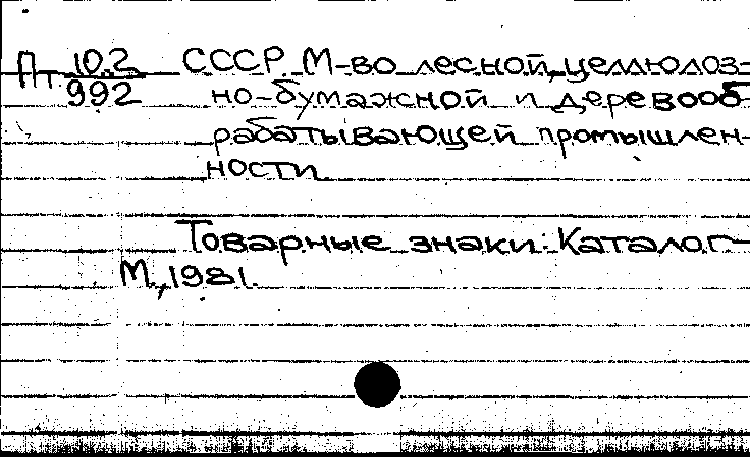 Пт 10.2/992 СССР. М-во лесной, целлюлоз-
но-бумажной и деревооб-
рабатывающей промышлен-
ности.
Товарные знаки: Каталог.-
М., 1981.